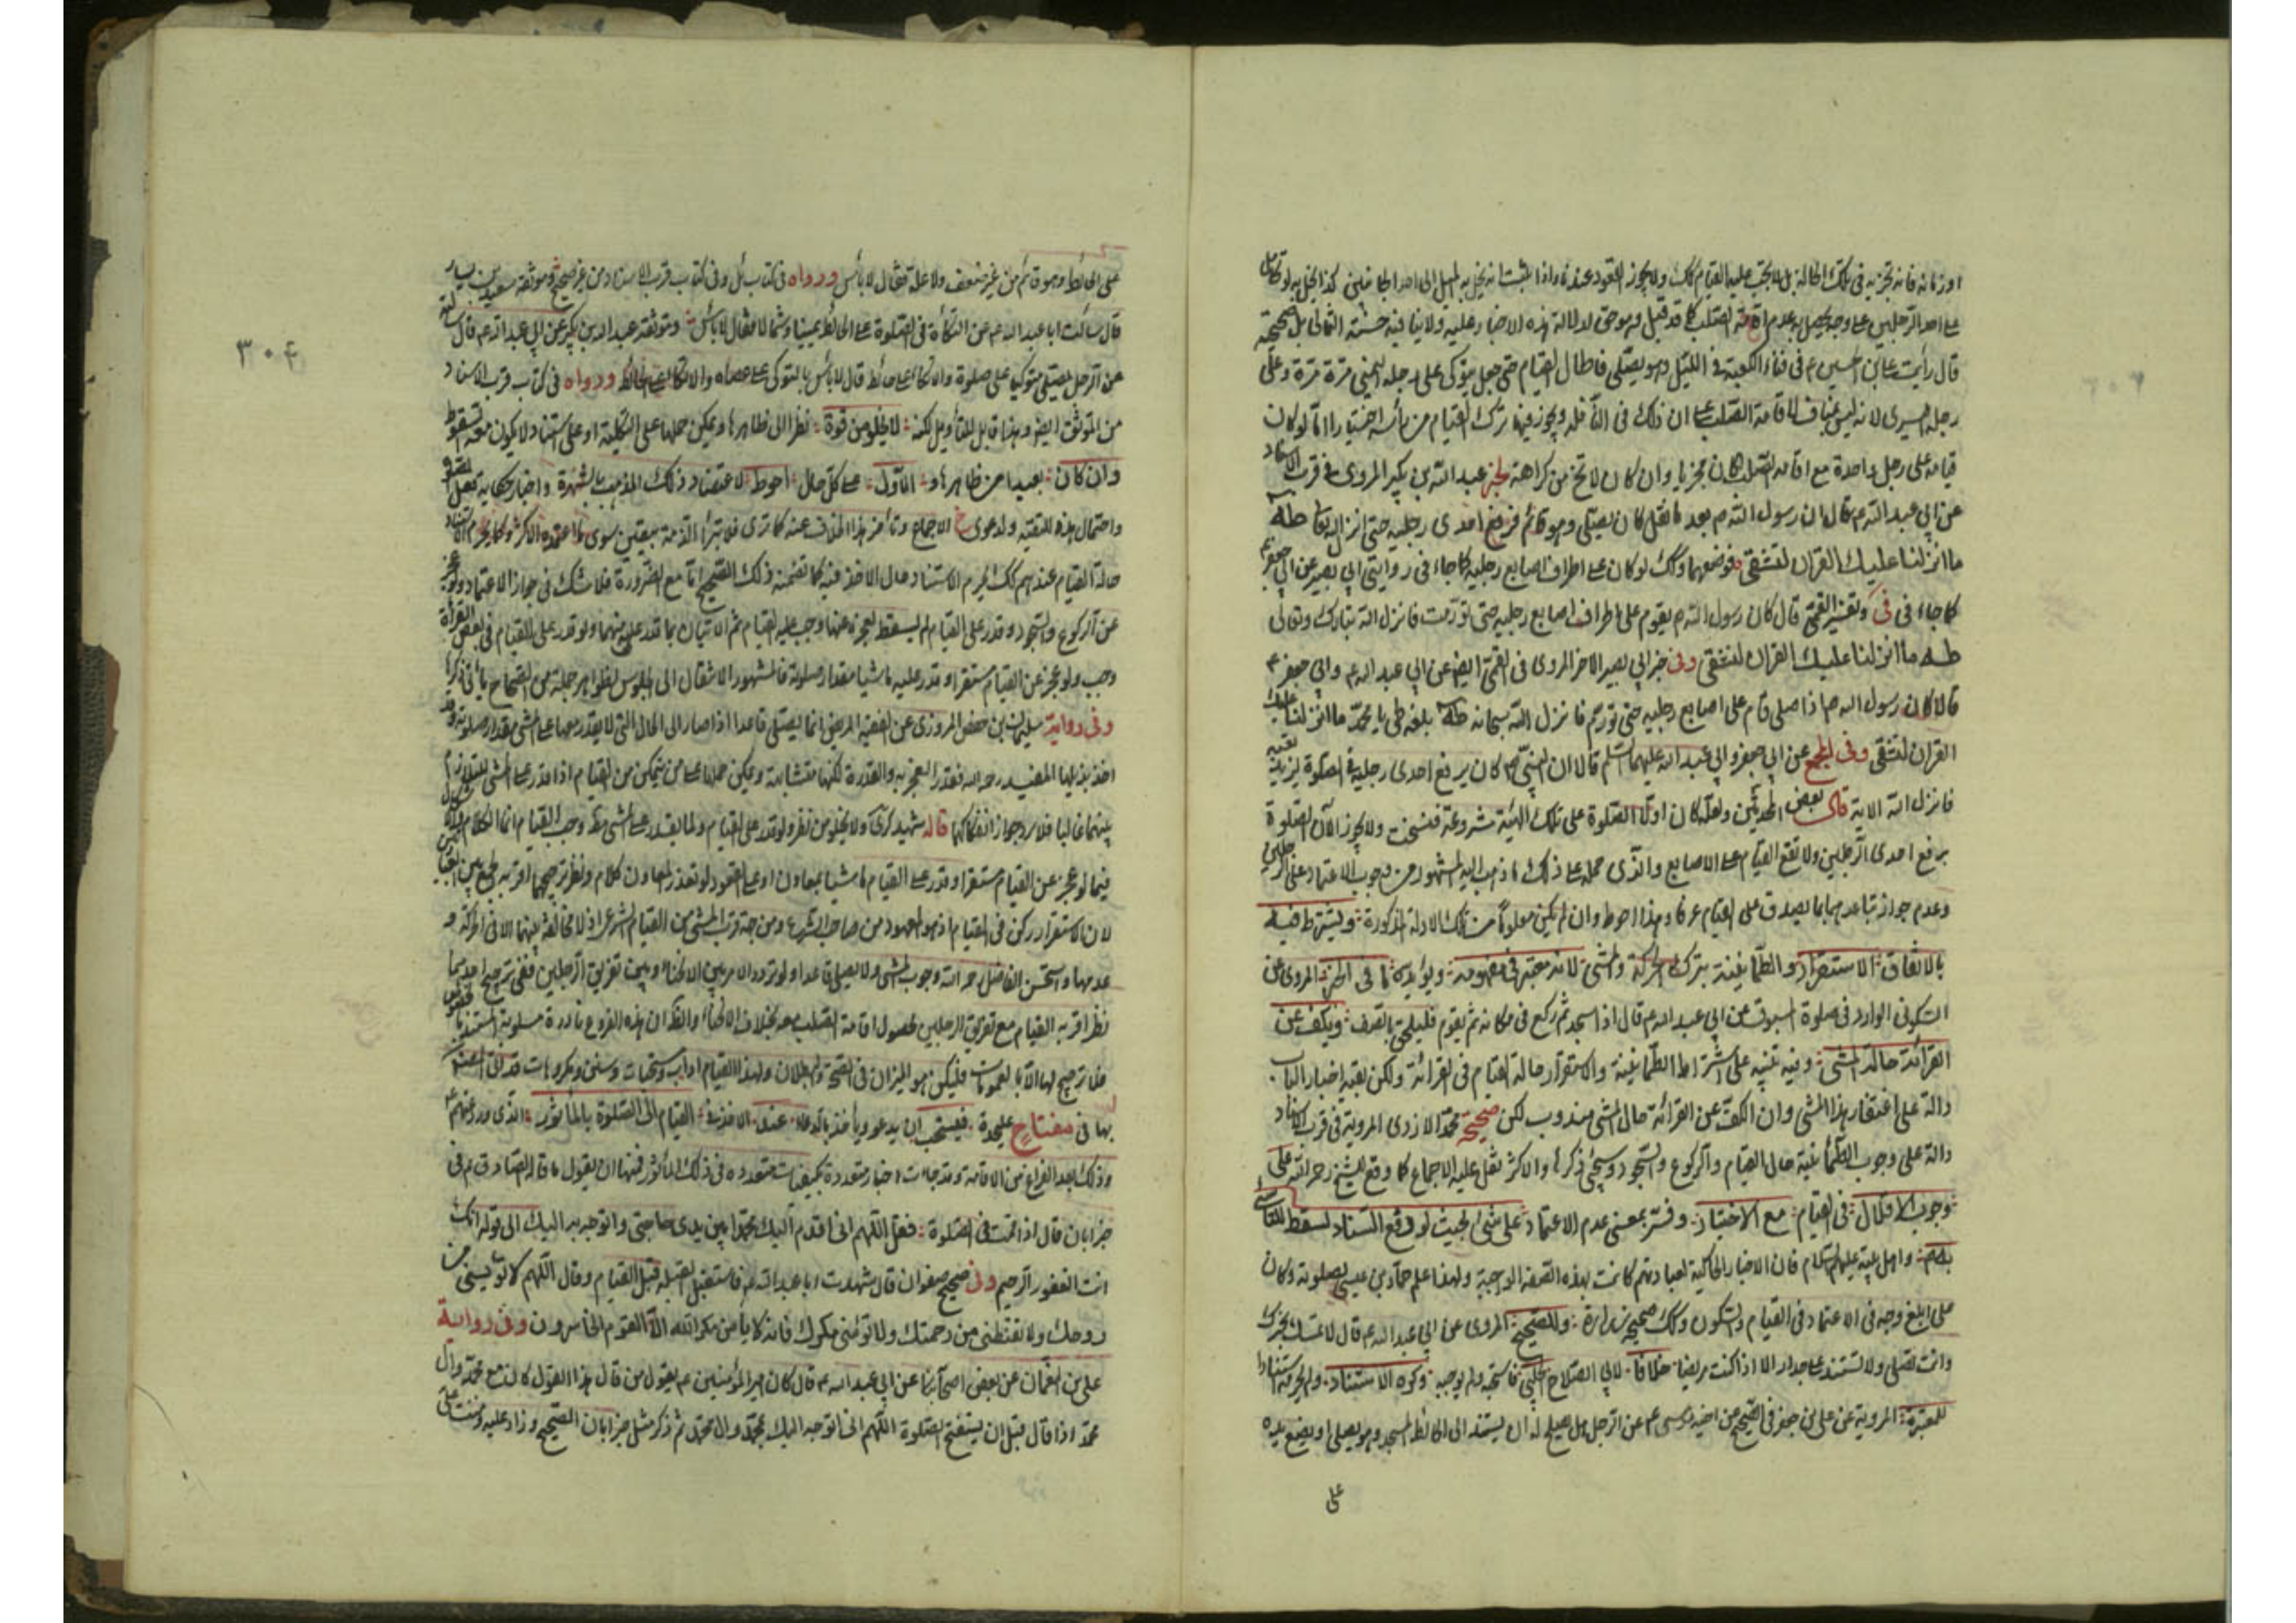 او زمانه فانه تجزيه فى تلك الحالة بل لا يجب عليه القيام كك ولا يجوز القعود عندنا واذا ثبت انه يخل به الميل الى احد الجانبين كذا يخل به لو تحامل
على احد الرجلين على وجه يحصل به عدم اقامة الصلب كما قد قيل وهو حق لدلالة هذه الاخبار عليه ولا ينافيه حسنة الثمالى بل صحيحته
قال رأيت على بن الحسين ع فى فناء الكعبة فى الليل وهو يصلى فاطال القيام حتى جعل يتوكى على رجله اليمنى مرة مرة وعلى
رجله اليسرى لانه ليس بمناف لاقامة الصلب على ان ذلك فى النافله ويجوز فيها ترك القيام من رأسه اختيارا امّا لو كان
قيامه على رجل واحدة مع اقامة الصلب كان مجزيا وان كان لا تخ من كراهة لخبر عبد الله بن بكير المروى فى قرب الاسناد
عن ابى عبد الله ع قال ان رسول الله ص بعد ما ثقل كان يصلى وهو قائم فرفع احدى رجليه حتى انزل الله تعالى طه
ما انزلنا عليك القران لتشقى فوضعهما وكك لو كان على اطراف اصابع رجليه كما جاء فى روايتى ابى بصير عن ابى جعفر ع
كما جاء فى فى وتفسير القمى قال كان رسول الله ص يقوم على اطراف اصابع رجليه حتى تورمت فانزل الله تبارك وتعالى
طه ما انزلنا عليك القران لتشقى وفى خبر ابى بصير الاخر المروى فى القمى ايضا عن ابى عبد الله ع وابى جعفر ع
قالا كان رسول الله ص اذا صلى قام على اصابع رجليه حتى تورم فانزل الله سبحانه طه بلغة طى يا محمد ما انزلنا عليك
القران لتشقى وفى المجمع عن ابى جعفر وابى عبد الله عليهما السلم قالا ان النبى ص كان يرفع احدى رجليه فى الصلوة ليزيد تعبه
فانزل الله الاية قال بعض المحدثين ولعله كان اول الصلوة على تلك الهيئة مشروعة فنسخت ولا يجوز الآن الصلوة
برفع احدى الرجلين ولا تقع القيام على الاصابع والذى حمله على ذلك ما ذهب اليه المشهور من وجوب الاعتماد على الرجلين
وعدم جواز تباعدهما بما يصدق على القيام عرفا وهذا احوط وان لم يكن معلوما من تلك الادلة المذكورة ويشترط فيه
بالاتفاق الاستقرار والطمأنينة بترك الحركة والمشى لانه معتبر فى مفهومه ويؤيده ما فى الخبر المروى عن
السكونى الوارد فى صلوة المسبوق عن ابى عبد الله ع قال اذا سجد ثم ركع فى مكانه ثم يقوم فليلحق بالصف ويكف عن
القرائة حالة المشى وفيه تنبيه على اشتراط الطمأنينة والاستقرار حالة القيام فى القرائة ولكن بقية اخبار الباب
دالة على اغتفار هذا المشى وان الكف عن القرائة حال المشى مندوب لكن صحيحة محمد الازدى المروية فى قرب الاسناد
دالة على وجوب الطمأنينة حال القيام والركوع والسجود وسيجئ ذكرها والاكثر نقل عليه الاجماع كما وقع للشيخ رحمه الله على
وجوب الاقلال فى القيام مع الاختيار وفسر بمعنى عدم الاعتماد على شئ بحيث لو وقع السناد لسقط للتأسى
به ص واهل بيته عليهم السلام فان الاخبار الحاكية لعبادتهم كانت بهذه الصفة الواجبة ولهذا علم حماد بن عيسى بصلوته وكان
على ابلغ وجه فى الاعتماد فى القيام والسكون وكك صحيحة زرارة وللصحيح المروى عن ابى عبد الله ع قال لا تمسك بخمرك
وانت تصلى ولا تستند على جدار الا اذا كنت مريضا خلافا لابى الصلاح الحلبى فاستحبه ولم يوجبه وكره الاستناد ولم يحرمه استنادا
للمعتبرة المروية عن على بن جعفر فى الصحيح عن اخيه موسى ع عن الرجل هل يصلح له ان يستند الى الحائط المسجد وهو يصلى او يضع يده
على
٣٠٤
على الحائط وهو قائم من غير ضعف ولا علة فقال لا بأس ورواه فى كتاب ئل وفى كتاب قرب الاسناد من غير صحيح وموثقة سعيد بن يسار
قال سألت ابا عبد الله ع عن التكأة فى الصلوة على الحائط يمينا وشمالا فقال لا بأس وموثقة عبد الله بن بكير عن ابى عبد الله ع قال سألته
عن الرجل يصلى متوكيا على صلوة والاتكاء على حائط قال لا بأس بالتوكى على عصاه والاتكاء على الحائط ورواه فى كتاب قرب الاسناد
من الموثق ايضا وهذا قابل للتأويل لكنه لا يخلو من قوة نظرا الى ظاهرها ويمكن حملها على التكلية او على استناد لا يكون معه السقوط
وان كان بعيدا من ظاهرها و الاول على كل حال احوط لاعتضاد ذلك المذهب بالشهرة واخبار حكاية فعل
واحتمال هذه للتقية ولدعوى الاجماع وتأخر هذا الخلاف عنه كما ترى فلا تبرأ الذمة بيقين سوى ما اعتمده الاكثر وكما يحرم الاستناد
حالة القيام عندهم كك يحرم الاستناد حال الاخذ فيه كما تضمنه ذلك الصحيح اما مع الضرورة فلا شك فى جواز الاعتماد ولو عجز
عن الركوع والسجود وقدر على القيام لم يسقط بعجزه عنهما وجب عليه القيام ثم الاتيان بما قدر على منهما ولو قدر على القيام فى بعض القرائة
وجب ولو عجز عن القيام مستقرا وقدر عليه ماشيا مقدار صلوته فالمشهور الانتقال الى الجلوس لظواهر جملة من الصحاح يأتى ذكرها
وفى رواية سليمان بن حفص المروزى عن الفقيه المريض انما يصلى قاعدا اذا صار الى الحال التى لا يقدر معها على مشى مقدار صلوته وقد
اخذ بذيلها المفيد رحمه الله فقدر العجز به والقدرة لكنها متشابهة ويمكن حملها على من يتمكن من القيام اذا قدر على المشى للتلازم
بينهما غالبا فلا يرد جواز انفكاكهما قاله شهيد كرى ولا يخلو من نظر ولو قدر على القيام ولما يقدر على المشى وجب القيام انما الكلام
فيما لو عجز عن القيام مستقرا وقدر على القيام ماشيا بمعاون او على القعود لو تعذر المعاون كلام ونظر ترجيحهما اقربه الجمع بين
لان الاستقرار ركن فى القيام اذ هو المعهود من صاحب الشرع ومن جهة قرب المشى من القيام الشرعى اذ لا مخالفة بينهما الا فى الحركة و
عدمها واستحسن الفاضل رحمه الله وجوب المشى ولا يصلى قاعدا ولو تردد الامر بين الانحناء وبين تفريق الرجلين ففى ترجيح احدهما
نظر اقربه القيام مع تفريق الرجلين لحصول اقامة الصلب معه بخلاف الانحناء والظ ان هذه الفروع نادرة مسلوبة المستند
فلا ترجيح لها الا بالعمومات فليكن هو الميزان فى الصحة والبطلان ولهذا القيام اداب ومستحبات وسنن ومكروهات قد
بها فى مفتاح عليحدة فيستحب ان يدعو ويأخذ بالدعاء عند الاخذ فى القيام الى الصلوة بالمأثور الذى ورد عنهم ع
وذلك بعد الفراغ من الاقامة وقد جاءت اخبار متعددة بكيفيات متعدده فى ذلك المأثور فمنها ان يقول ما قاله الصادق ع فى
خبر ابان قال اذا قمت فى الصلوة فقل اللهم انى اقدم اليك محمدا بين يدى حاجتى واتوجه به اليك الى قوله انك
انت الغفور الرحيم وفى صحيح صفوان قال شهدت ابا عبد الله ع فاستقبل القبلة قبل القيام وقال اللهم لا تؤيسنى من
روحك ولا تقنطنى من رحمتك ولا تؤمنى مكرك فانه لا يأمن مكر الله الا القوم الخاسرون وفى رواية
على بن النعمان عن بعض اصحابنا عن ابى عبد الله ع قال كان امير المؤمنين ع يقول من قال هذا القول كان مع محمد وآل
محمد اذا قال قبل ان يستفتح الصلوة اللهم انى اتوجه اليك بمحمد وال محمد ثم ذكر مثل خبر ابان الصحيح وزاد عليه ومننت على